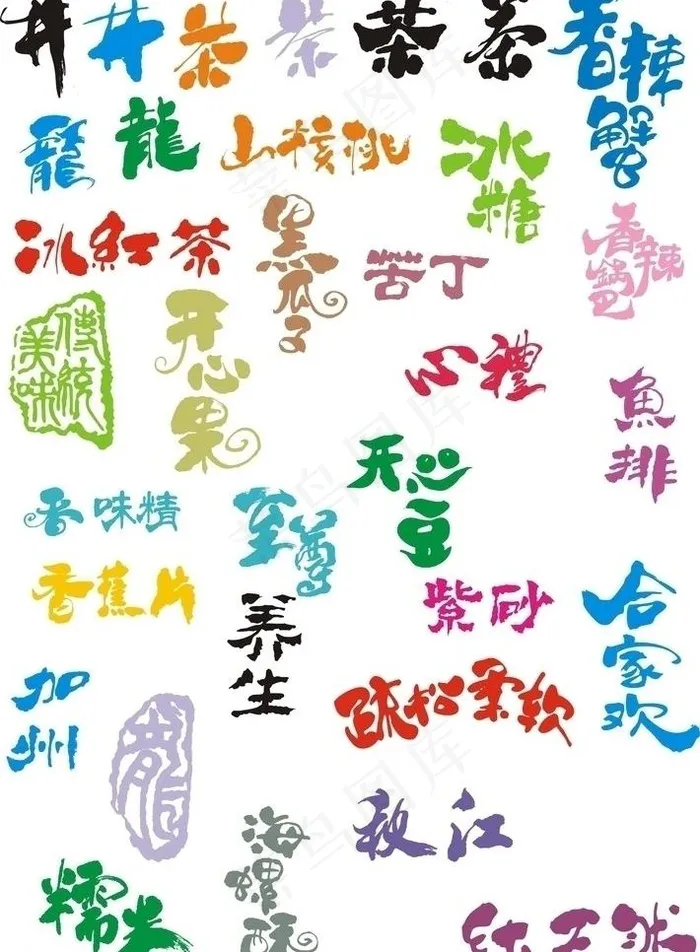 井
井
茶
茶
茶
茶
香辣
蟹
龍
龍
山核桃
冰
糖
冰紅茶
黑
瓜
子
苦丁
香辣
鍋
巴
傳統
美味
开
心
果
心禮
魚
排
开心
豆
香味精
至尊
香蕉片
养
生
紫砂
合
家
欢
加
州
疏松柔软
龍
秋江
海
螺
酥
糯米